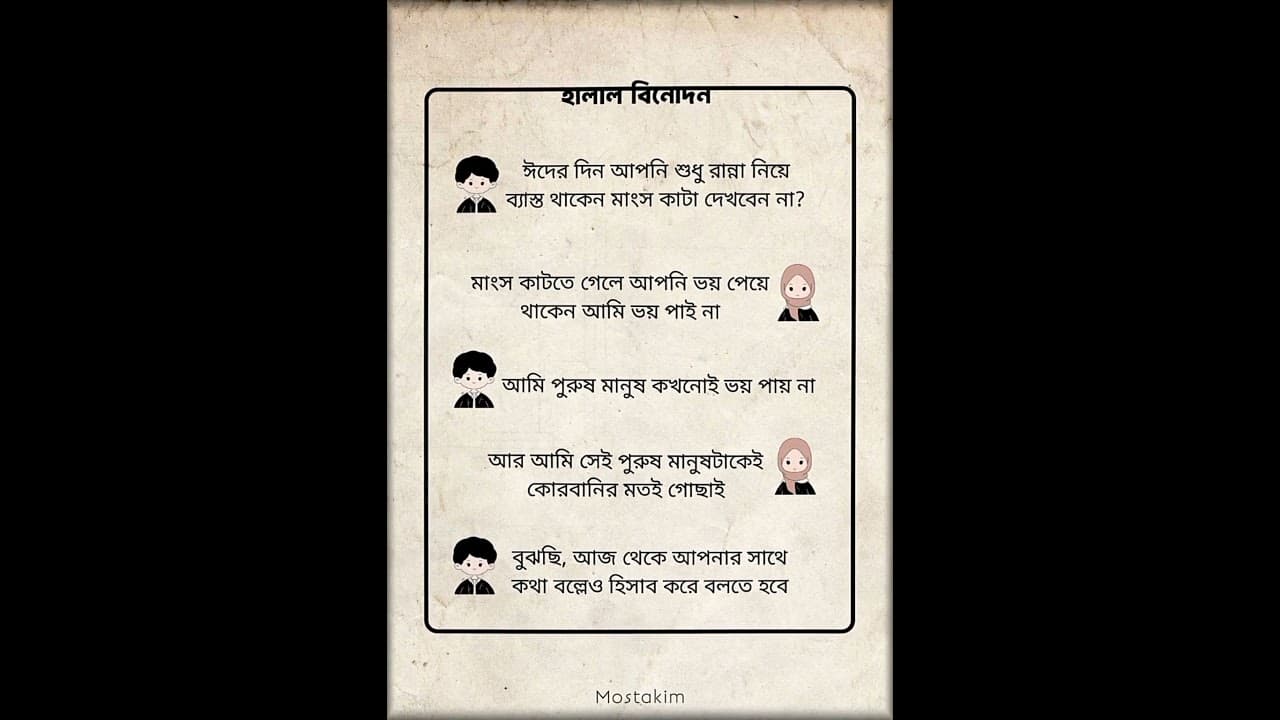 হালাল বিনোদন
ঈদের দিন আপনি শুধু রান্না নিয়ে
ব্যাস্ত থাকেন মাংস কাটা দেখবেন না?
মাংস কাটতে গেলে আপনি ভয় পেয়ে
থাকেন আমি ভয় পাই না
আমি পুরুষ মানুষ কখনোই ভয় পায় না
আর আমি সেই পুরুষ মানুষটাকেই
কোরবানির মতই গোছাই
বুঝছি, আজ থেকে আপনার সাথে
কথা বল্লেও হিসাব করে বলতে হবে
Mostakim